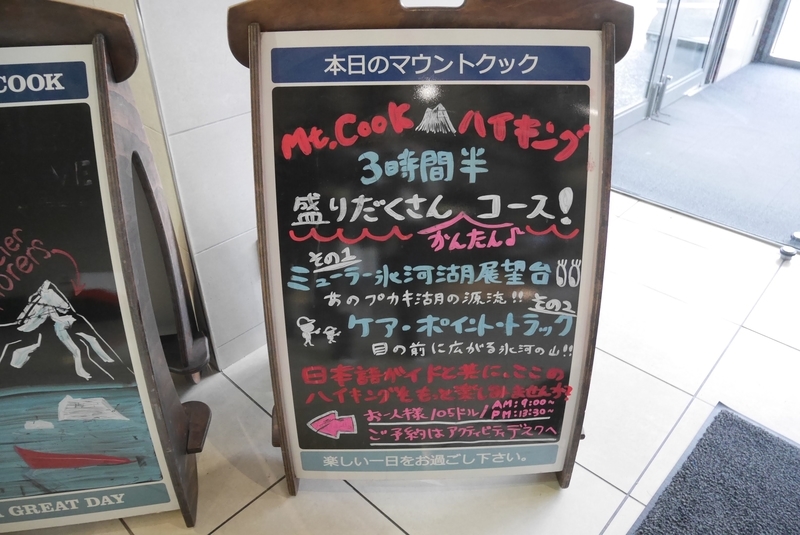 COOK
cier
orers
A GREAT DAY
本日のマウントクック
Mt.Cook ハイキング
3時間半
盛りだくさん コース!
かんたん♪
その1
ミューラー氷河湖展望台
あのプカキ湖の源流!!
その2
ケア・ポイント・トラック
目の前に広がる氷河の山!!
日本語ガイドと共に、ここの
ハイキングをもっと楽しみませんか?
お一人様 105ドル/ AM: 9:00~
PM: 13:30~
ご予約は アクティビティデスクへ
楽しい一日をお過ごし下さい。